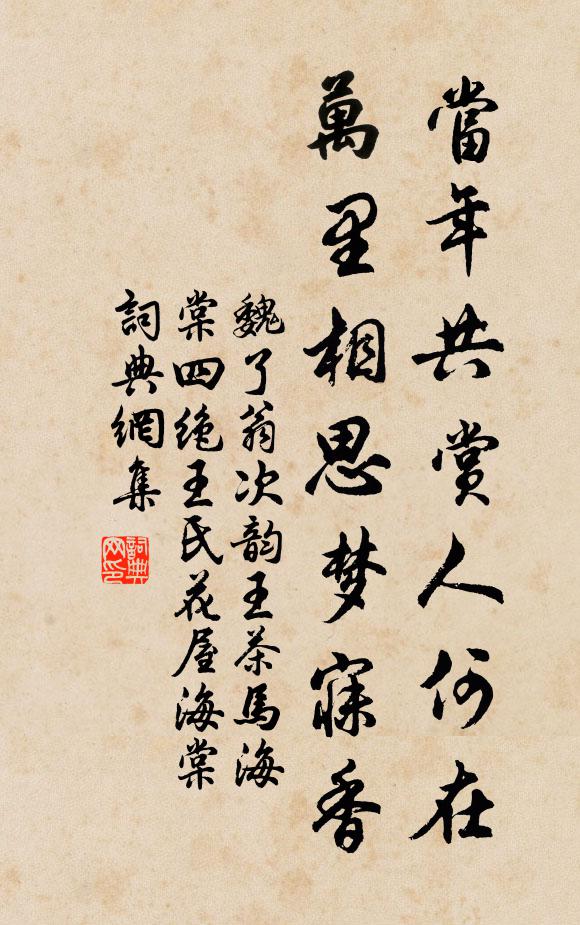 當年共賞人何在
萬里相思梦寐香
魏了翁次韵王茶馬海
棠四绝王氏花屋海棠
詞典網集
詞典网印